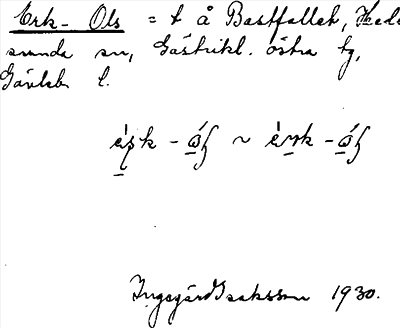 Erk-Ols = t å Bastfallet, Hede
sunda sn, Gästrikl. östra tg,
Gävleb. l.
Ingegärd Isaksson 1930.